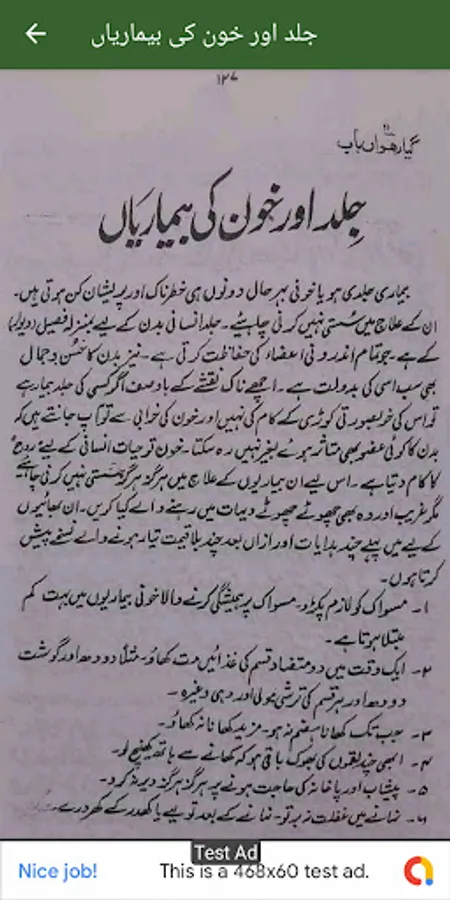 جلد اور خون کی بیماریاں
۱۲۷
گیارھواں باب
جِلد اور خون کی بیماریاں
بیماری جلدی ہو یا خونی بہر حال دونوں ہی خطرناک اور پریشان کن ہوتی ہیں۔
ان کے علاج میں سُستی نہیں کرنی چاہیئے۔ جلد انسانی بدن کے لیے بمنزلہ فصیل (دیوار)
کے ہے۔ جو تمام اندرونی اعضاء کی حفاظت کرتی ہے۔ نیز بدن کا حُسن و جمال
بھی سب اسی کی بدولت ہے۔ اچھے ناک نقشے کے باوصف اگر کسی کی جلد بیمار ہے
تو اس کی خوبصورتی کوڑی کے کام کی نہیں اور خون کی خرابی سے تو آپ جانتے ہی کہ
بدن کا کوئی عضو بھی متاثر ہوئے بغیر نہیں رہ سکتا۔ خون تو حیات انسانی کے لیے روح
کا کام دیتا ہے۔ اس لیے ان بیماریوں کے علاج میں ہرگز ہرگز سستی نہیں کرنی چاہیئے
مگر غریب اور وہ بھی چھوٹے چھوٹے دیہات میں رہنے والے کیا کریں۔ ان بھائیوں
کے لیے میں پہلے چند ہدایات اور ازاں بعد چند بلا قیمت تیار ہونے والے نسخے پیش
کرتا ہوں۔
۱۔ مسواک کو لازم پکڑو۔ مسواک پر ہمیشگی کرنے والا خونی بیماریوں میں بہت کم
مبتلا ہوتا ہے۔
۲۔ ایک وقت میں دو متضاد قسم کی غذائیں مت کھاؤ۔ مثلاً دودھ اور گوشت
دودھ اور ہر قسم کی ترشی مولی اور دہی وغیرہ۔
۳۔ جب تک کھانا ہضم نہ ہو۔ مزید کھانا نہ کھاؤ۔
۴۔ ابھی چند لقموں کی بھوک باقی ہو کہ کھانے سے ہاتھ کھینچ لو۔
۵۔ پیشاب اور پاخانہ کی حاجت ہونے پر ہرگز ہرگز دیر نہ کرو۔
۶۔ نہانے میں غفلت نہ برتو۔ نہانے کے بعد تولیے یا کھدر کے کھردرے
Test Ad
Nice job!
This is a 468x60 test ad.